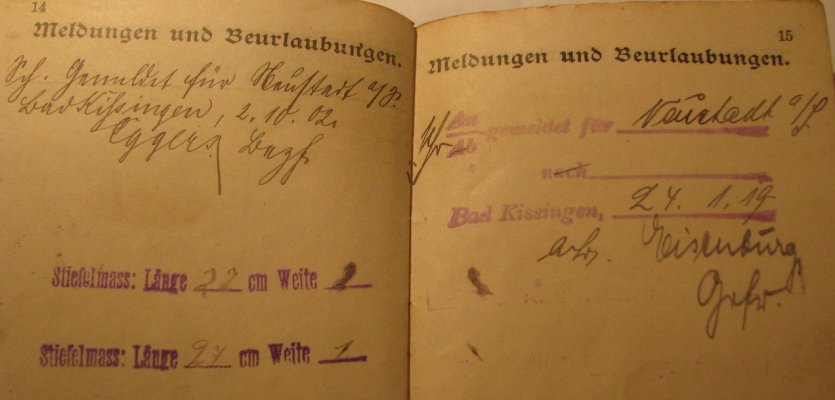 14
Meldungen und Beurlaubungen.
Sch. Gemeldet für Neustadt a/S.
Bad Kissingen, 2. 10. 02.
Eggers
Stiefelmass: Länge 27 cm Weite 2
Stiefelmass: Länge 27 cm Weite 1
15
Meldungen und Beurlaubungen.
An
Ab
gemeldet für Neustadt a/S.
nach
Bad Kissingen, 24. 1. 19
Eisenburg
Gefr.